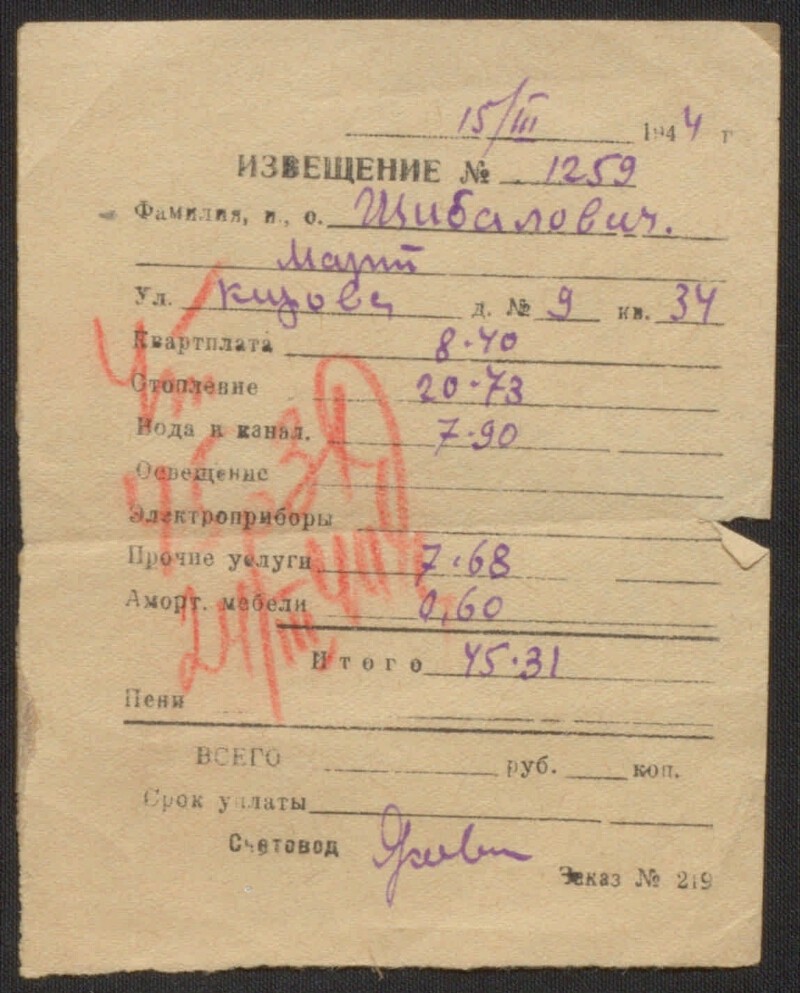 15/III 1944 г
ИЗВЕЩЕНИЕ № 1259
Фамилия, и., о. Шибалович.
Мария
Ул. Кирова д. № 9 кв. 34
Квартплата 8.40
Отопление 20.73
Вода и канал. 7.90
Освещение
Электроприборы
Прочие услуги 7.68
Аморт. мебели 0,60
Итого 45.31
Пени
ВСЕГО руб. коп.
Срок уплаты
Счетовод
Заказ № 219
45 р 31
24/III-44